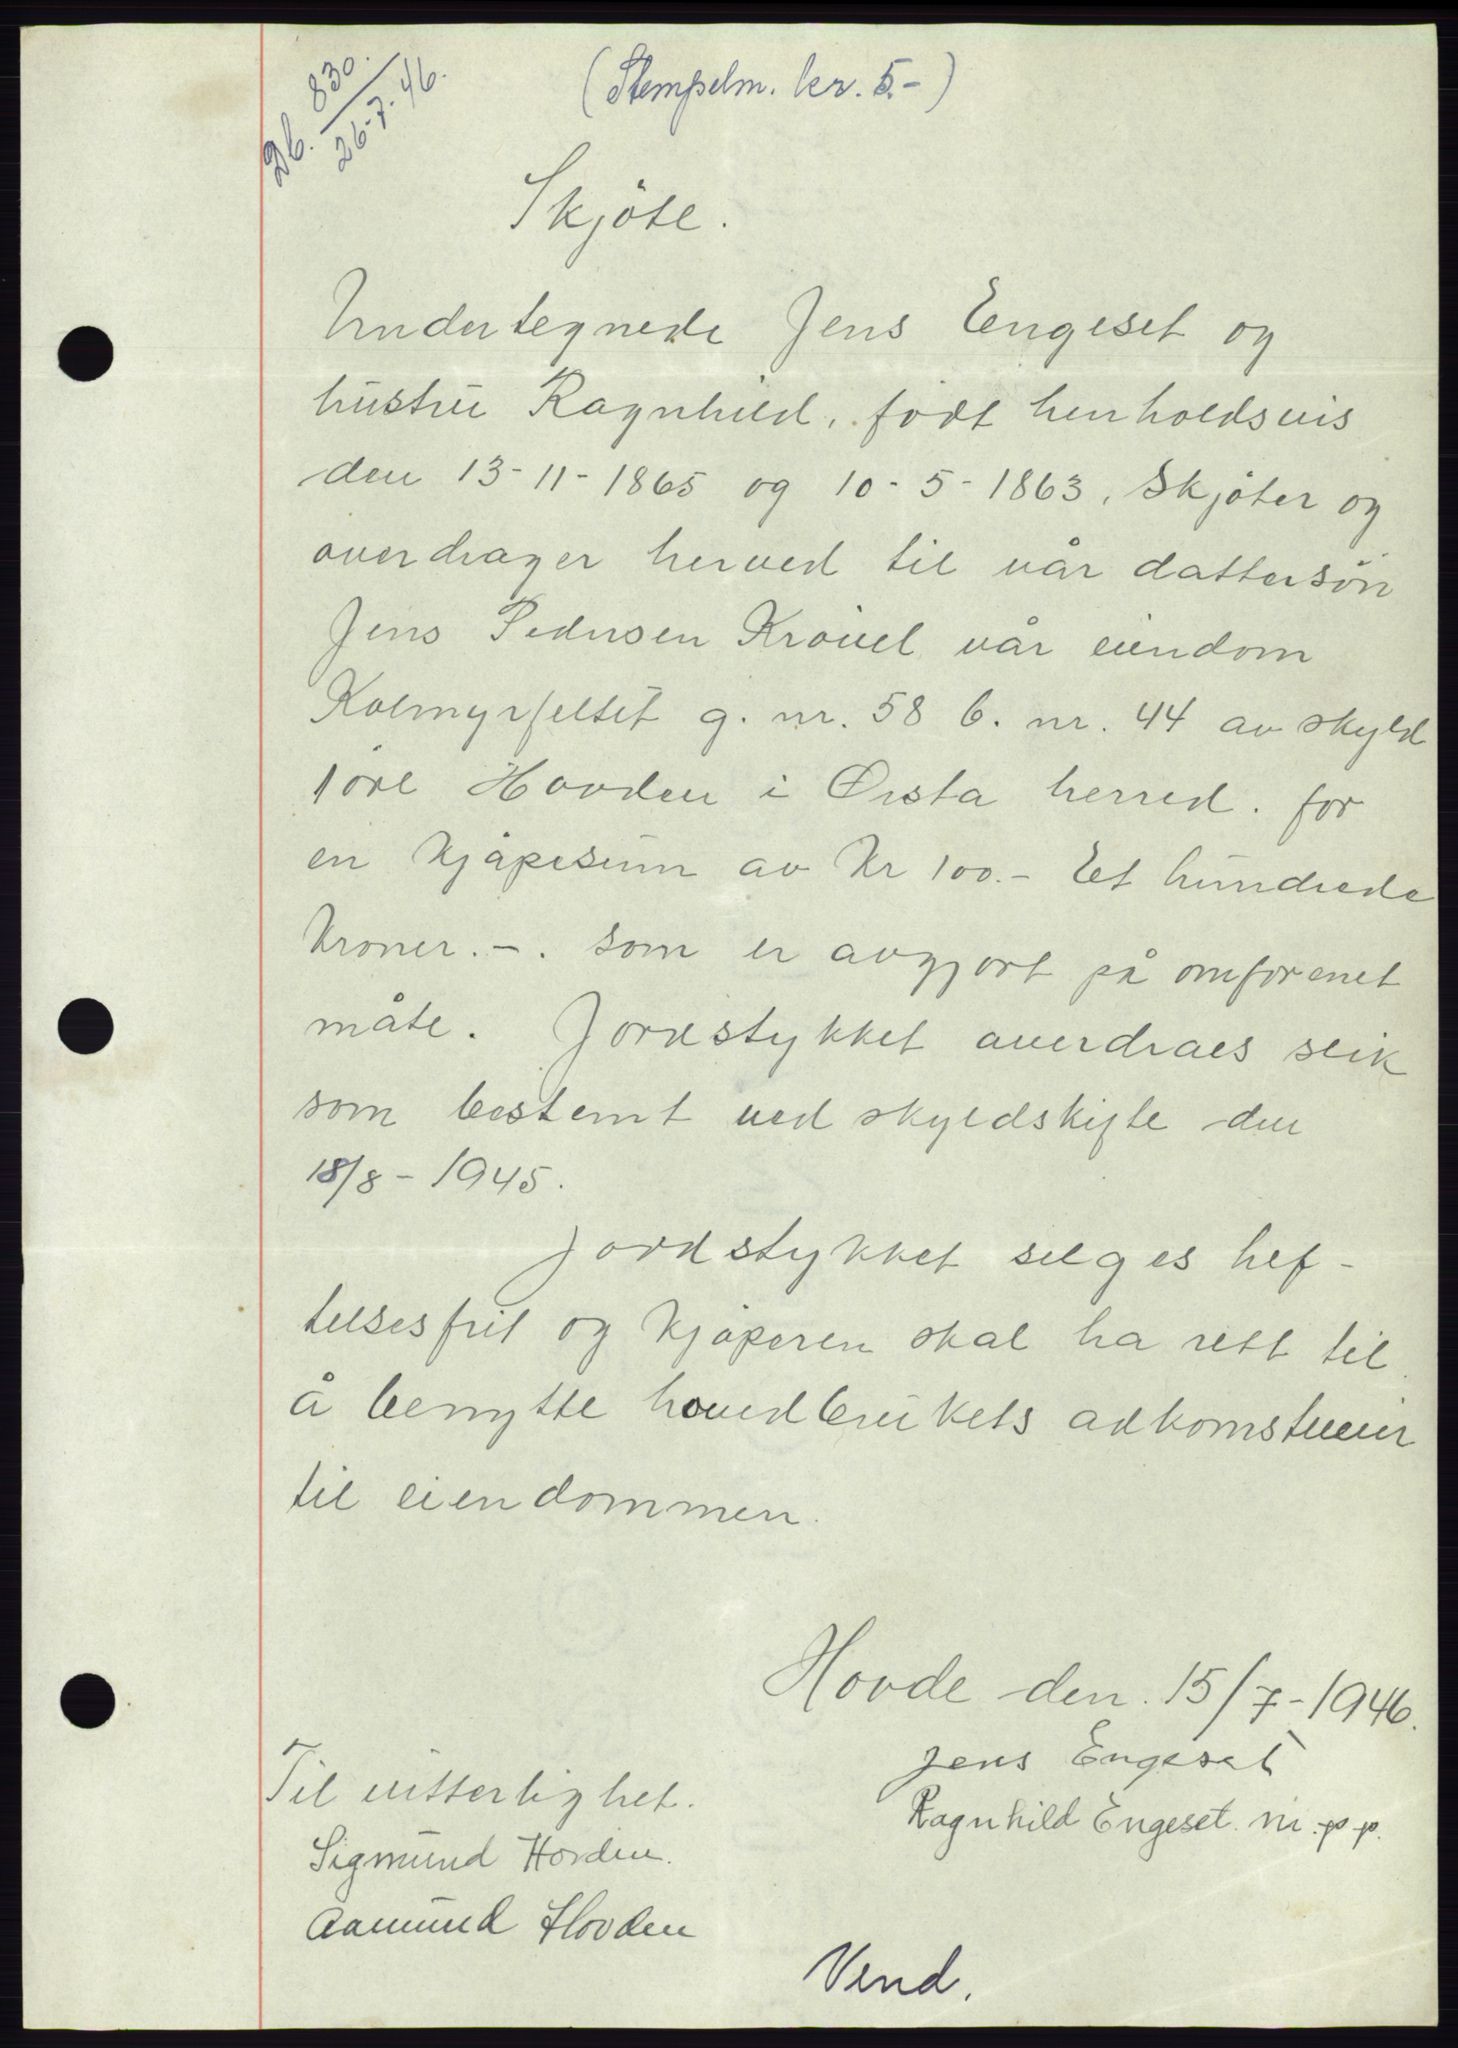 Db. 830.
26-7-46.
(Stempelm. kr. 5.-)
Skjöte.
Undertegnede Jens Engeset og
hustru Ragnhild, födt henholdsvis
den 13-11-1865 og 10-5-1863, Skjöter og
overdrager herved til vår dattersön
Jens Pedersen Krövel vår eiendom
Kolmyrfeltet g. nr. 58 b. nr. 44 av skyld
1 öre Hovden i Örsta herred. for
en Kjöpesum av Kr 100.- Et hundrede
Kroner.-. som er avgjort på omforenet
måte. Jordstykket överdraes slik
som bestemt ved skyldskifte den
18/8-1945.
Jordstykket selges hef-
telsesfrit og Kjöperen skal ha rett til
å benytte hovedbrukets adkomstveier
til eiendommen.
Hovde den. 15/7-1946.
Jens Engeset
Ragnhild Engeset. m.p.p.
Til vitterlighet.
Sigmund Hovden.
Aamund Hovden
Vend.